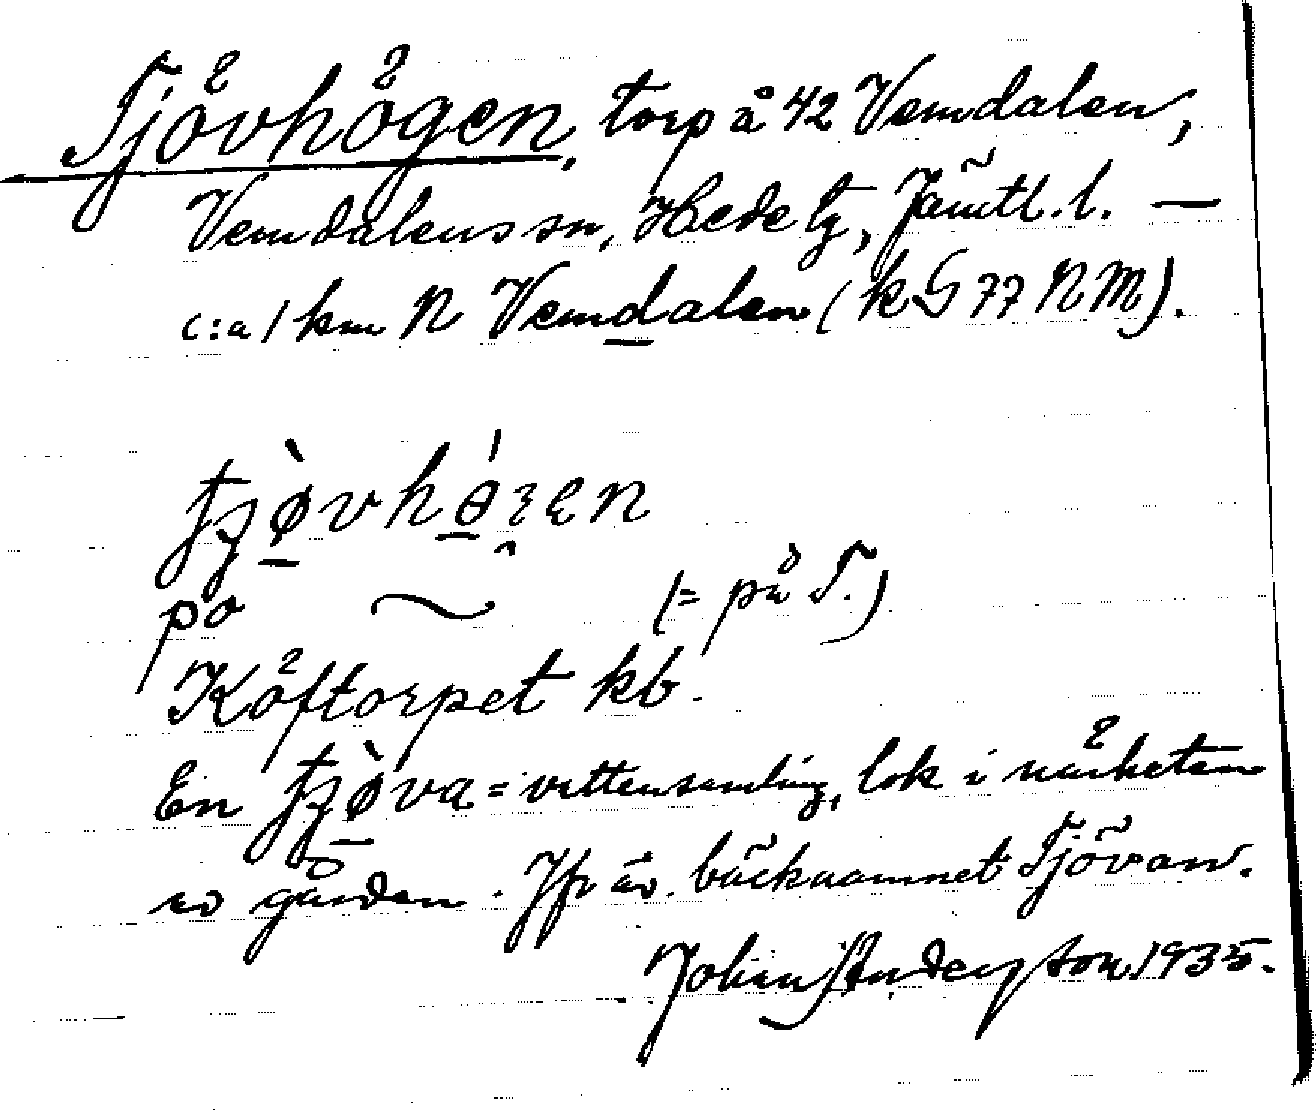 Tjövhögen, torp å 42 Vemdalen,
Vemdalens sn, Hede tg, Jämtl. l. —
c:a 1 km N Vemdalen (k G 77 N M).
po ~ (= på T.)
Köftorpet kb.
En = vattensamling, lok i närheten
av gården. Jfr äv. bäcknamnet Tjövan.
Johan Anderson 1935.